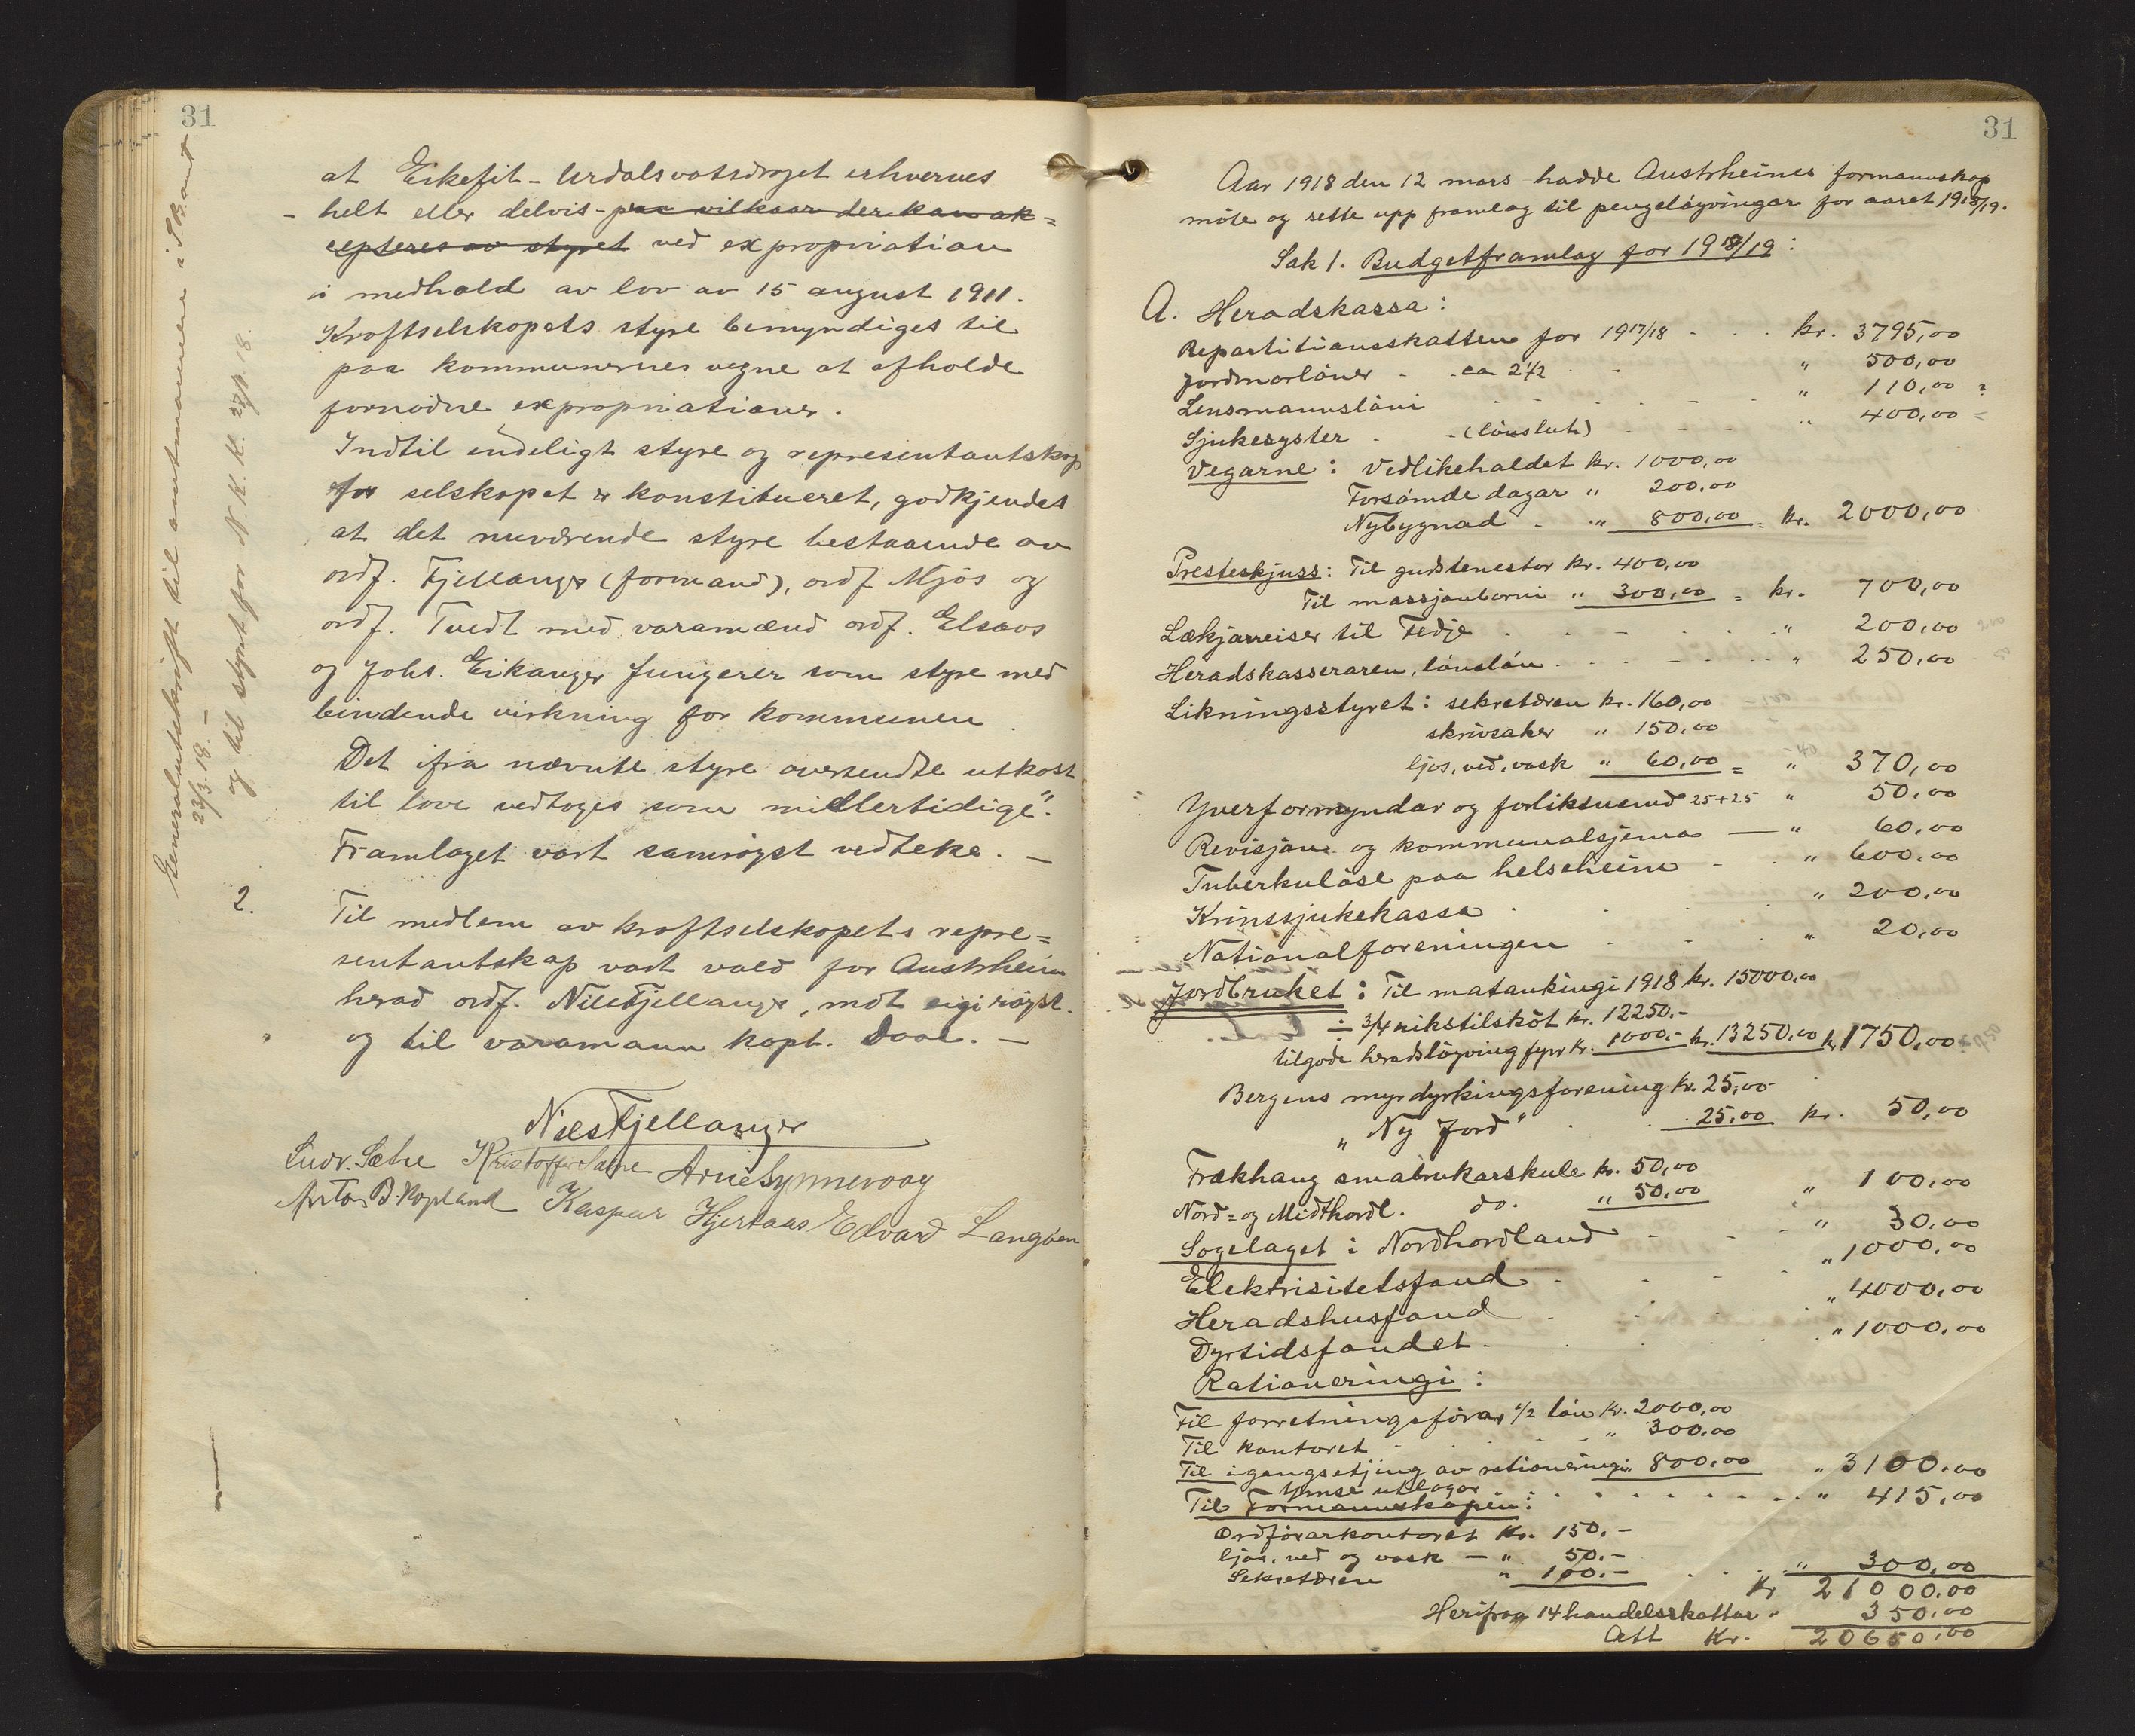 31
at Eikefit-Urdalsvatsdraget erhverves
- helt eller delvis - paa vilkaar der kan ak=
cepteres av styret ved expropriation
i medhold av lov av 15 august 1911.
Kraftselskapets styre bemyndiges til
paa kommunernes vegne at afholde
fornødne expropriationer.
Indtil endeligt styre og representantskap
for selskapet er konstitueret, godkjendes
at det nuværende styre bestaaende av
ordf. Fjellanger (formand), ordf Mjøs og
ordf. Tvedt med varamænd ordf. Elsaas
og Johs. Eikanger fungerer som styre med
bindende virkning for kommunen.
Det ifra nævnte styre oversendte utkast
til love vedtoges som midlertidige".
Framlaget vart samrøyst vedteke. -
2.
Til medlem av kraftselskapets repre=
sentantskap vart vald for Austrheim
herad ordf. Nils Fjellanger, mot eigi røyst.
og til varamann kapt. Daae. -
Nils Fjellanger
Ludv. Sætre Kristoffer Sætre Arne Synnevaag
Anton B. Kopland Kaspar Hjertaas Edvard Langøen
Generalutskrift til amtmannen i S. B. amt
23/3.18. -
og til styret for N. K. K. 27/3.18.
31
Aar 1918 den 12 mars hadde Austrheims formannskap
møte og sette upp framlag til pengeløyvingar for aaret 1918/19.
Sak 1. Budgetframlag for 1918/19:
A. Heradskassa:
Repartitionsskatten for 1917/18 - - kr. 3795,00
Jordmorløner - - ca 2 1/2 - " 500,00
Lensmannsløni " 110,00
Sjukesyster - - (lønslut) " 400,00
Vegarne: Vedlikehaldet kr. 1000,00
Forsømde dagar " 200,00
Nybygnad - " 800,00 = kr. 2000,00
Presteskjuss: Til gudstenestor kr. 400,00
Til massjonborni " 300,00 = kr. 700,00
Lækjarreiser til Fedje " 200,00
Heradskasseraren, lønsløn " 250,00
Likningsstyret: sekretæren kr. 160,00
skrivsaker " 150,00
ljos, ved, vask " 60,00 = " 370,00
Yverformyndar og forliksmend 25+25 " 50,00
Revisjon og kommunalsjema — " 60,00
Tuberkuløse paa helseheim - " 600,00
Krinssjukekassa " 200,00
Nationalforeningen " 20,00
Jordbruket: Til mataukingi 1918 kr. 15000,00
÷ 3/4 rikstilskot kr. 12250.-
tilgode heradsløyving fyrr kr. 1000.- kr. 13250,00 kr. 1750,00
Bergens myrdyrkingsforening kr. 25,00
" Ny Jord" 25,00 kr. 50,00
Frækhaug smabrukarskule kr. 50,00
Nord= og Midthordl. do. " 50,00 " 100,00
Sogelaget i Nordhordland " 30,00
Elektrisitetsfond " 1000,00
Heradshusfond " 4000,00
Dyrtidsfondet " 1000,00
Rationeringi:
Til forretningsførar 1/2 løn kr. 2000,00
Til kontoret " 300,00
Til igangsetjing av rationeringi " 800,00 " 3100,00
Ymse utlogor " 415,00
Til Formannskapen:
Ordførarkontoret kr. 150.-
ljos, ved og vask - " 50.-
Sekretæren " 100.- " 300,00
kr 21000,00
Herifraa 14 handelsskattar " 350,00
Att kr. 20650,00